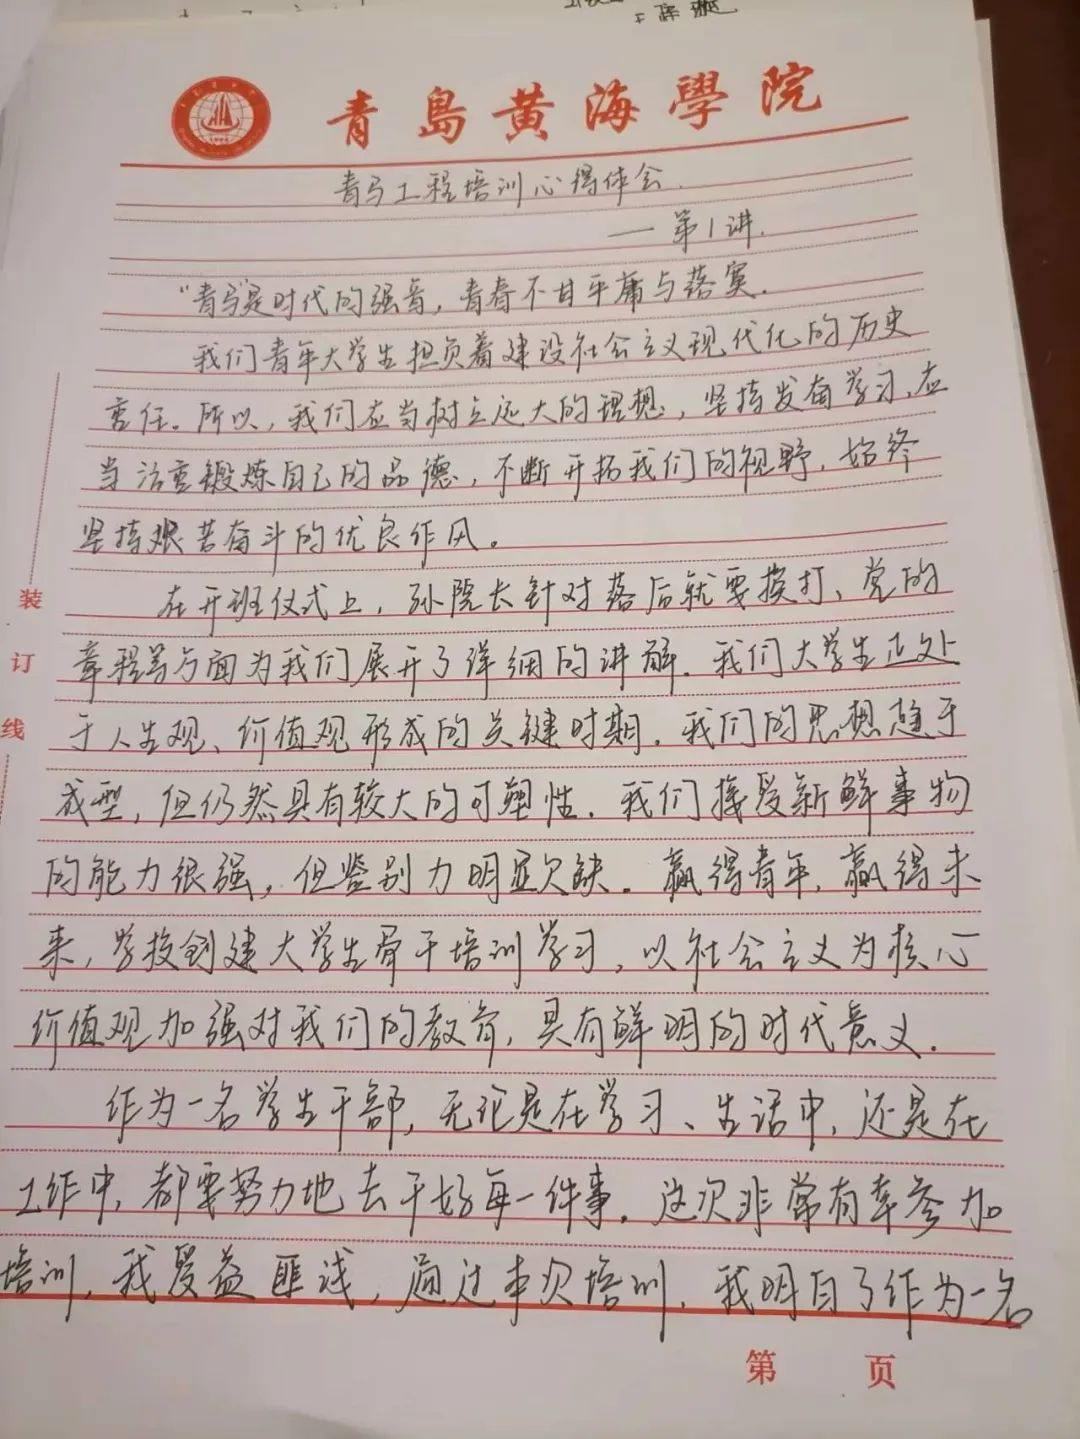 青島黄海學院
青马工程培训心得体会.
——第1讲.
“青马”是时代的强音，青春不甘平庸与落寞.
我们青年大学生担负着建设社会主义现代化的历史
责任。所以，我们应当树立远大的理想，坚持发奋学习，应
当注重锻炼自己的品德，不断开拓我们的视野，始终
坚持艰苦奋斗的优良作风。
在开班仪式上，孙院长针对落后就要挨打、党的
章程等方面为我们展开了详细的讲解．我们大学生正处
于人生观、价值观形成的关键时期．我们的思想趋于
成型，但仍然具有较大的可塑性．我们接受新鲜事物
的能力很强，但鉴别力明显欠缺．赢得青年，赢得未
来，学校创建大学生骨干培训学习，以社会主义为核心
价值观加强对我们的教育，具有鲜明的时代意义．
作为一名学生干部，无论是在学习、生活中，还是在
工作中，都要努力地去干好每一件事．这次非常有幸参加
培训，我受益匪浅，通过本次培训，我明白了作为一名
装
订
线
第 页